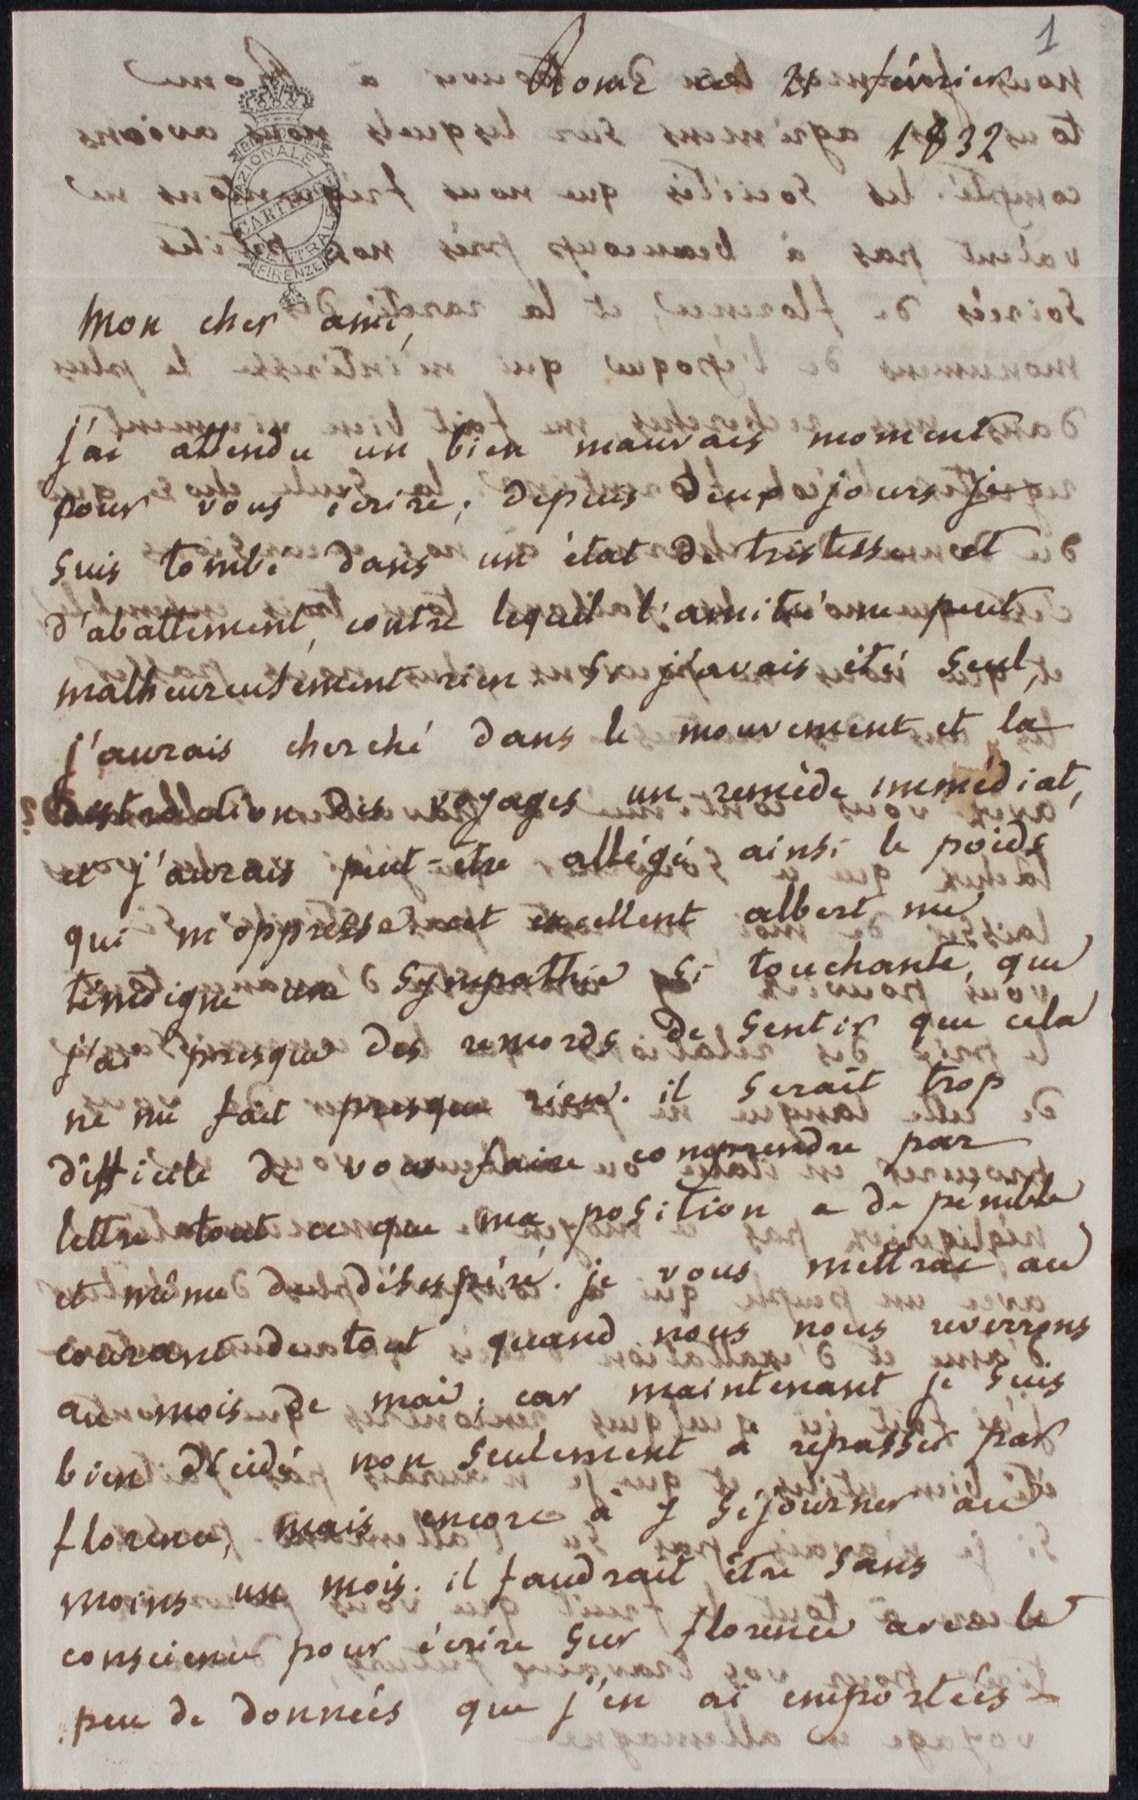 1
Rome ce 21 février
1832
BIBLIOTECA NAZIONALE CENTRALE
CARTEGGI
FIRENZE
Mon cher ami,
j'ai attendu un bien mauvais moment
pour vous écrire; depuis deux jours je
suis tombé dans un état de tristesse et
d'abattement, contre lequel l'amitié ne peut
malheureusement rien. Si j'avais été seul,
j'aurais cherché dans le mouvement et la
distraction des voyages un remède immédiat,
et j'aurais peut-être allégé ainsi le poids
qui m'oppresse. cet excellent albert me
témoigne une sympathie si touchante, que
j'ai presque des remords de sentir que cela
ne me fait presque rien. il serait trop
difficile de vous faire comprendre par
lettre tout ce que ma position a de pénible
et même de désespéré. je vous mettrai au
courant de tout quand nous nous reverrons
au mois de mai; car maintenant je suis
bien décidé non seulement à repasser par
florence, mais encore à y séjourner au
moins un mois. il faudrait être sans
conscience pour écrire sur florence avec le
peu de données que j'en ai emportées